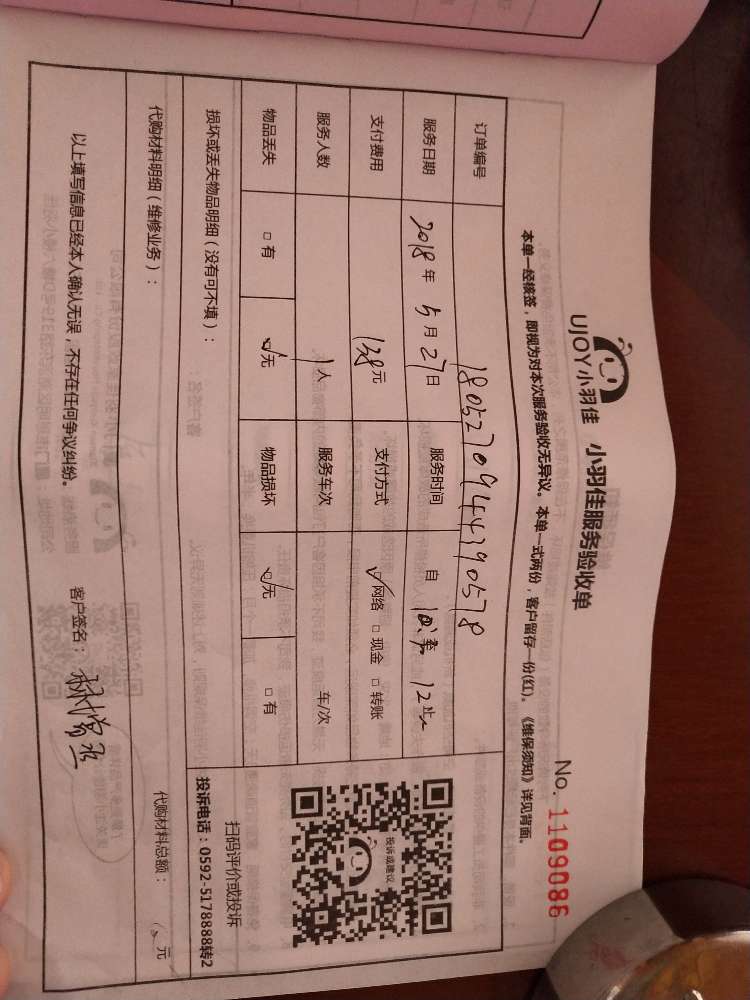 UJOY小羽佳 小羽佳服务验收单
No. 1109086
本单一经核签，即视为对本次服务验收无异议。本单一式两份，客户留存一份(红)。《维保须知》详见背面。
订单编号 1805270944790578
服务日期 2018年 5月 27日 服务时间 自 至 12止
支付费用 138元 支付方式 ☑网络 □现金 □转账
服务人数 1人 服务车次 车/次
物品丢失 □有 ☑无 物品损坏 ☑无 □有
投诉或建议
扫码评价或投诉
投诉电话：0592-5178888转2
损坏或丢失物品明细（没有可不填）：
代购材料明细（维修业务）：
代购材料总额： 元
以上填写信息已经本人确认无误，不存在任何争议纠纷。 客户签名：